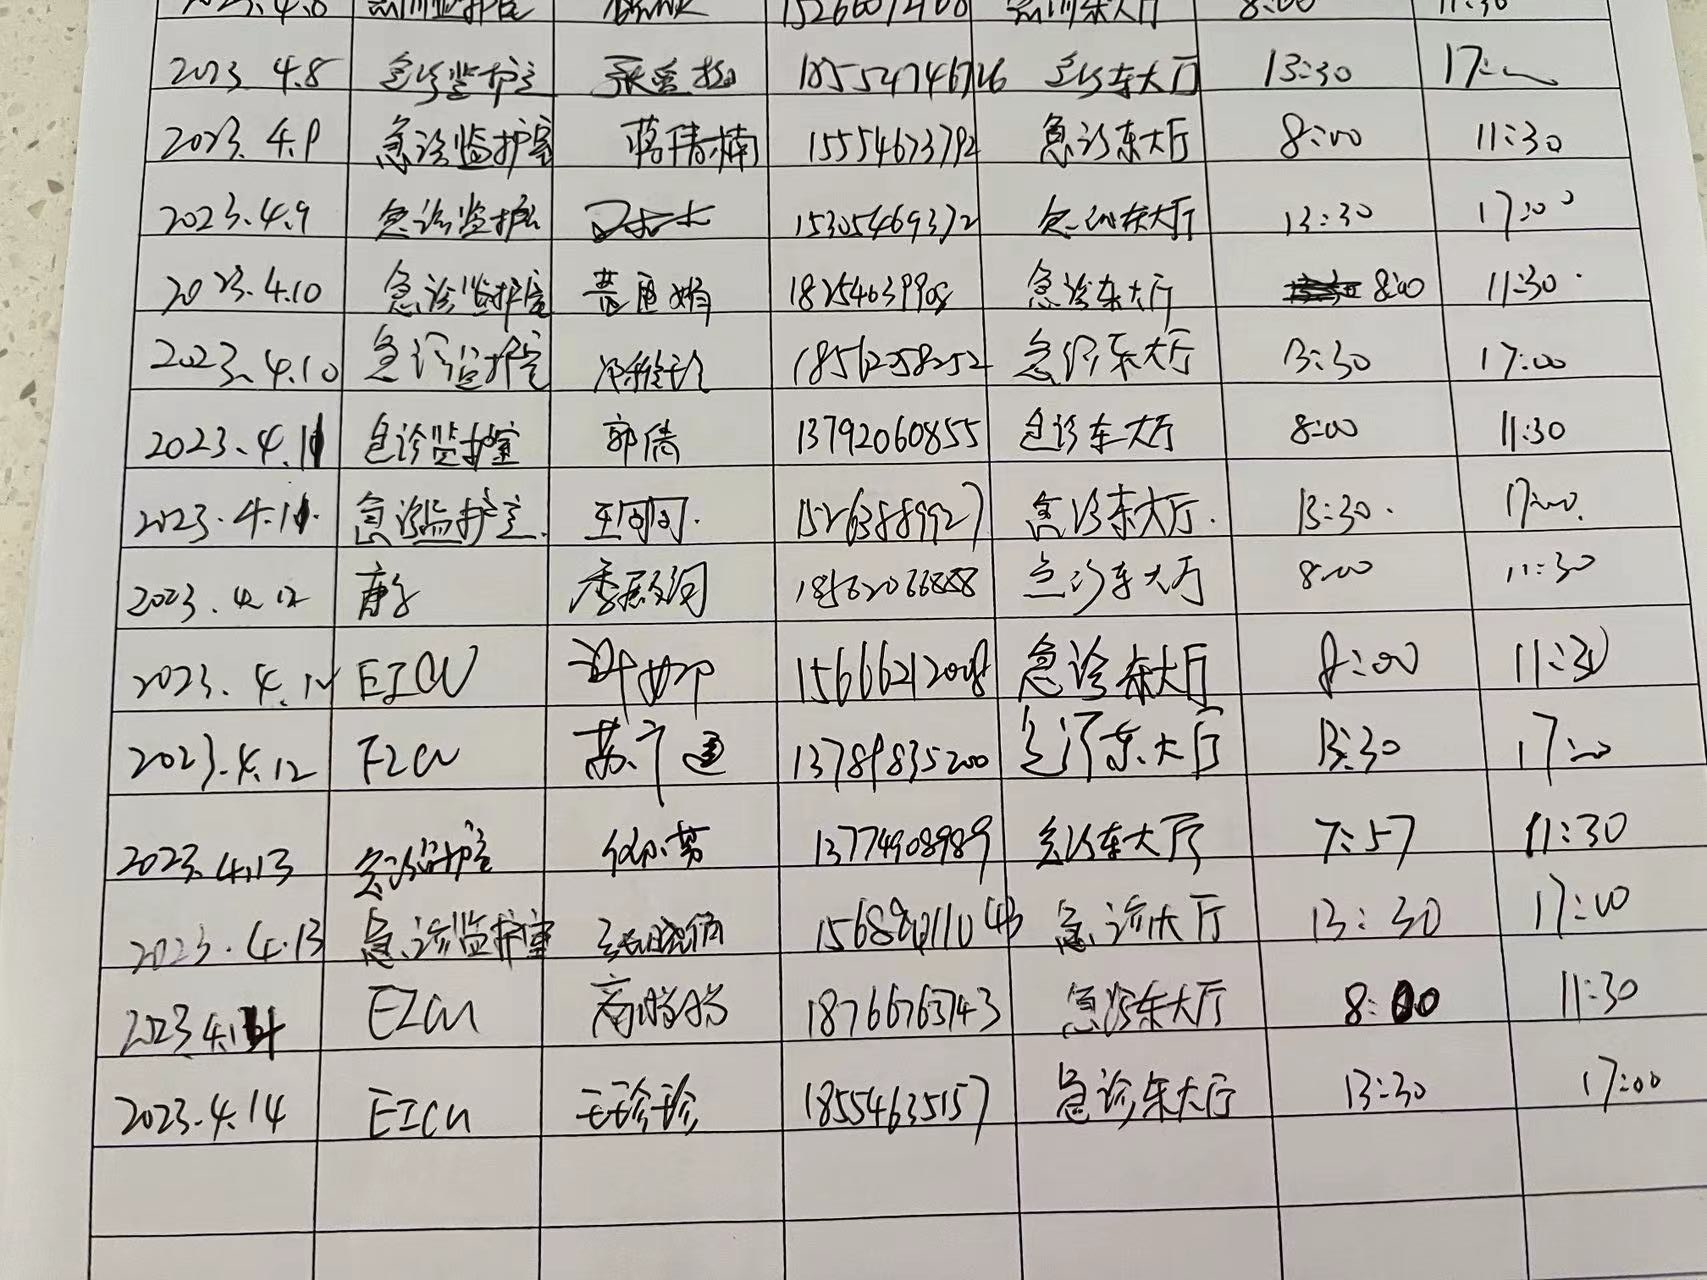 2023.4.8 急诊监护室 急诊东大厅 8:00 11:30
2023.4.8 急诊监护室 急诊东大厅 13:30 17:00
2023.4.9 急诊监护室 蒋倩楠 15554673792 急诊东大厅 8:00 11:30
2023.4.9 急诊监护室 15305469372 急诊东大厅 13:30 17:00
2023.4.10 急诊监护室 18254639908 急诊东大厅 8:00 11:30
2023.4.10 急诊监护室 18562258252 急诊东大厅 13:30 17:00
2023.4.11 急诊监护室 郭倩 13792060855 急诊东大厅 8:00 11:30
2023.4.11. 急诊监护室. 王珂珂. 15263889927 急诊东大厅. 13:30. 17:00.
2023.4.12 急诊东大厅 8:00 11:30
2023.4.12 EICU 15666212008 急诊东大厅 8:00 11:30
2023.4.12 EICU 13789835200 急诊东大厅 13:30 17:00
2023.4.13 急诊监护室 13774908989 急诊东大厅 7:57 11:30
2023.4.13 急诊监护室 急诊大厅 13:30 17:00
2023.4.14 EICU 18766763743 急诊东大厅 8:00 11:30
2023.4.14 EICU 王珍珍 18554635157 急诊东大厅 13:30 17:00